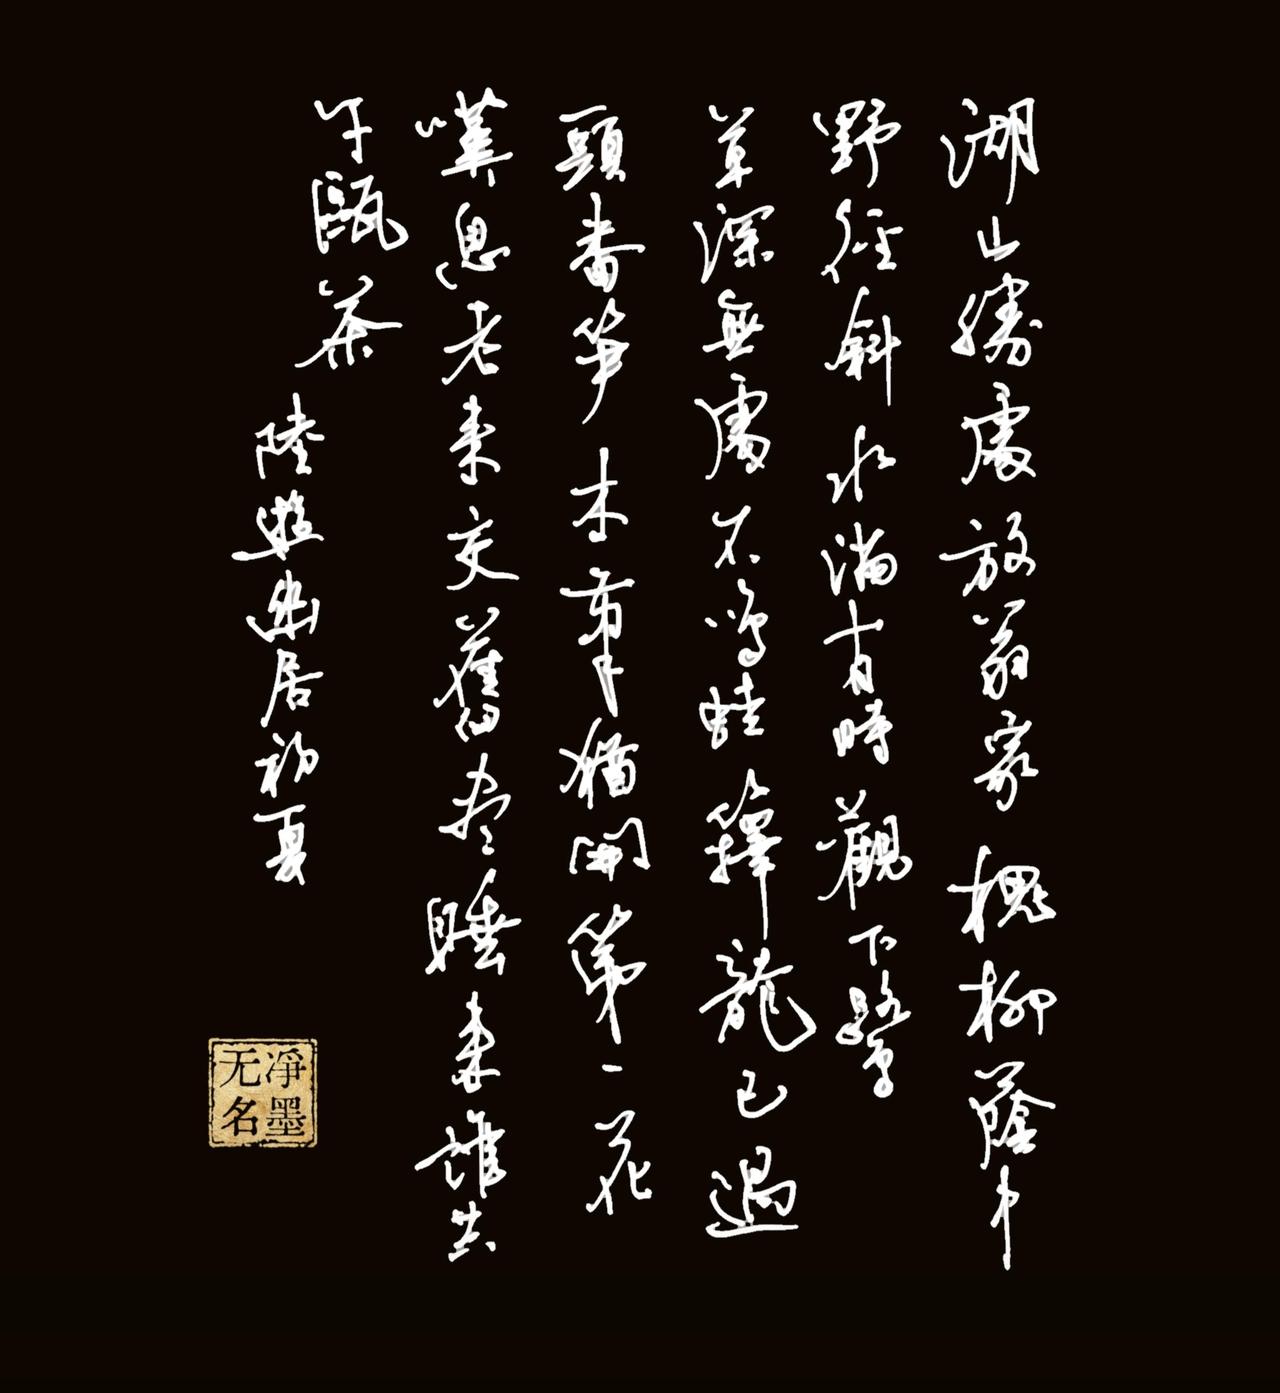 湖山勝處放翁家槐柳蔭中
野徑斜水滿有時觀下鷺
草深無處不鳴蛙籜龍已過
頭番笋木筆猶開第一花
嘆息老來交舊盡睡來誰共
午甌茶
陸遊幽居初夏
凈墨
无名